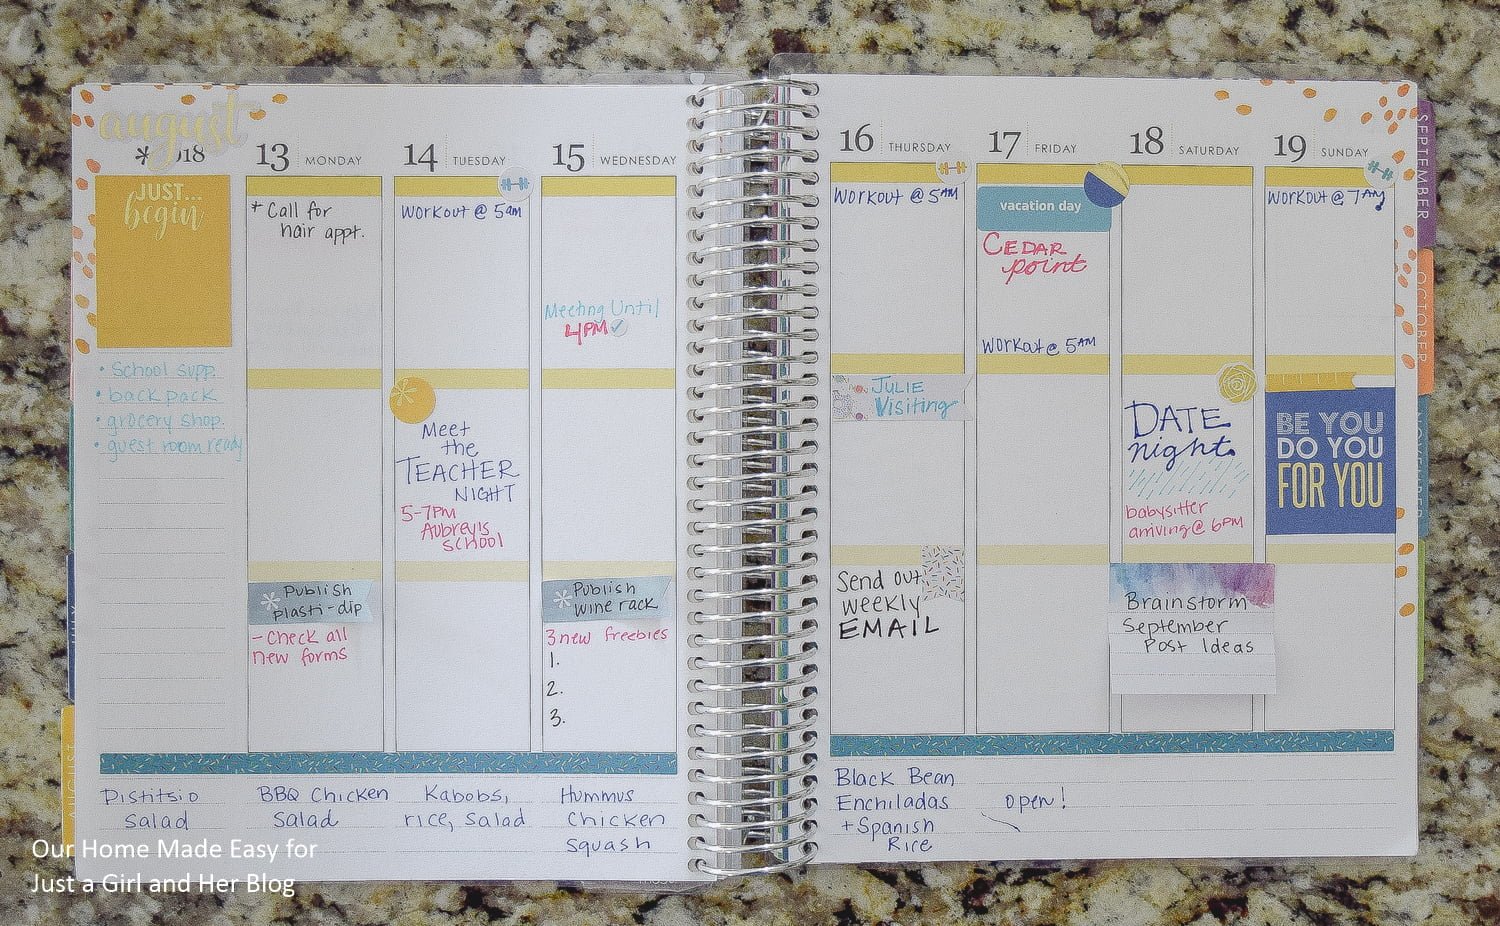 august
* 2018
JUST...
begin
• School supp.
• back pack
• grocery shop.
• guest room ready
13 MONDAY
* Call for
hair appt.
Publish
plasti-dip
- Check all
new forms
14 TUESDAY
Workout @ 5am
Meet
the
TEACHER
NIGHT
5-7PM
Aubrey's
SCHOOL
15 WEDNESDAY
Meeting Until
4PM
Publish
wine rack
3 new freebies
1.
2.
3.
Distitsio
Salad
BBQ Chicken
Salad
Kabobs,
rice, Salad
Hummus
Chicken
Squash
16 THURSDAY
Workout @ 5AM
JULIE
Visiting
Send out
weekly
EMAIL
17 FRIDAY
vacation day
CEDAR
point
Workout @ 5AM
18 SATURDAY
DATE
night.
babysitter
arriving @ 6PM
Brainstorm
September
Post Ideas
19 SUNDAY
Workout @ 7AM
BE YOU
DO YOU
FOR YOU
Black Bean
Enchiladas
+ Spanish
Rice
open!
SEPTEMBER
OCTOBER
NOVEMBER
AUGUST
Our Home Made Easy for
Just a Girl and Her Blog